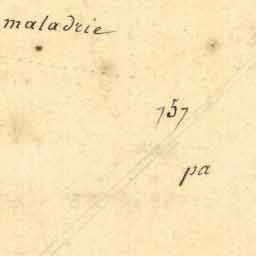 maladrie
757
pa